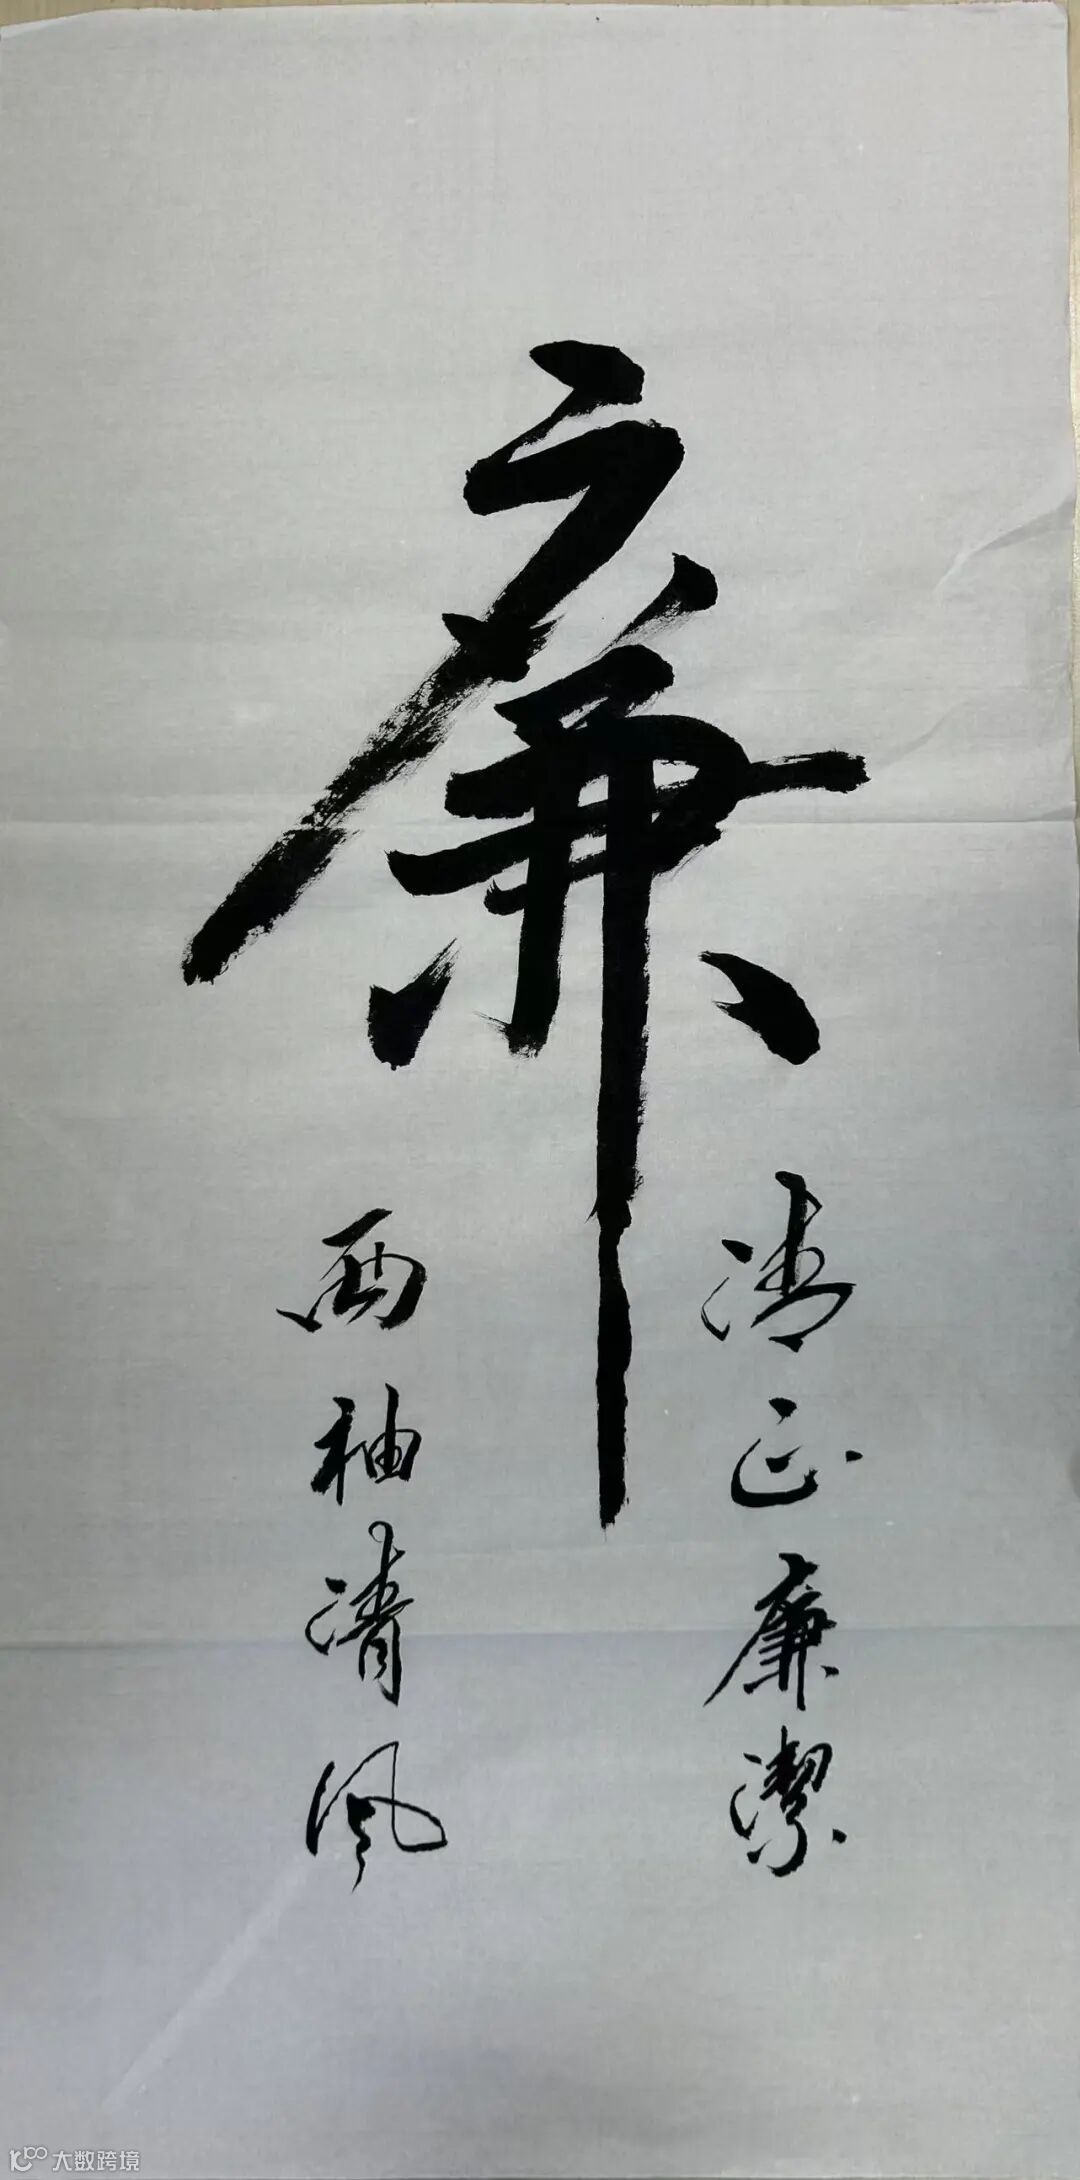 廉
清正廉潔
两袖清風
大数跨境